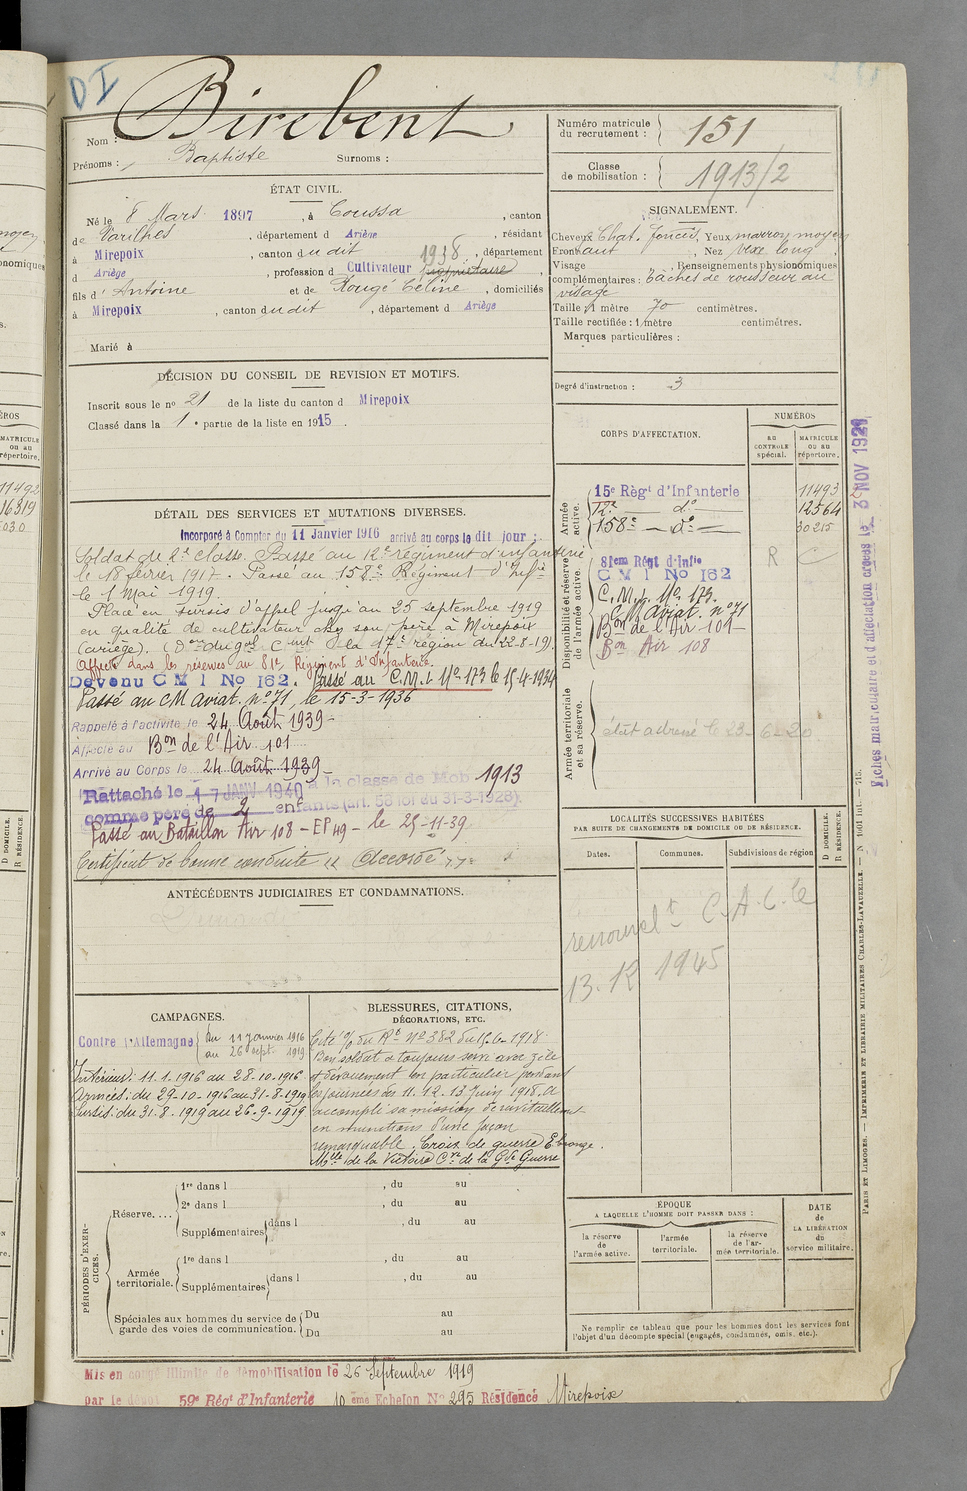 DI
Nom : Birebent
Prénoms : Baptiste Surnoms :
Numéro matricule du recrutement : 151
Classe de mobilisation : 1913/2
ÉTAT CIVIL.
Né le 8 Mars 1897, à Coussa, canton
de Varilhes, département d Ariège, résidant
à Mirepoix, canton du dit 1938, département
d Ariège, profession d Cultivateur propriétaire,
fils d'Antoine et de Rougé Céline, domiciliés
à Mirepoix, canton du dit, département d Ariège
Marié à
SIGNALEMENT.
Cheveux Chat. foncés, Yeux marron moyen
Front haut, Nez vexe long,
Visage, Renseignements physionomiques
complémentaires : Tâches de rousseur au
visage
Taille : 1 mètre 70 centimètres.
Taille rectifiée : 1 mètre centimètres.
Marques particulières :
Degré d'instruction : 3
DÉCISION DU CONSEIL DE REVISION ET MOTIFS.
Inscrit sous le no 21 de la liste du canton d Mirepoix
Classé dans la 1e partie de la liste en 1915.
CORPS D'AFFECTATION.
NUMÉROS
AU CONTROLE spécial.
MATRICULE ou au répertoire.
Armée active.
15e Régt d'Infanterie 11493
12e — do — 12564
158e — do — 30215
Disponibilité et réserve de l'armée active.
81em Régt d'Infie R C
C M I No 162
C. M. I. No 173.
C. M Aviat. no 71
Bon de l'Air 101
Bon Air 108
Armée territoriale et sa réserve.
état adressé le 23-6-20
DÉTAIL DES SERVICES ET MUTATIONS DIVERSES.
Incorporé à Compter du 11 Janvier 1916 arrivé au corps le dit jour ;
Soldat de 2e classe. Passé au 12e régiment d'infanterie
le 18 février 1917. Passé au 158e Régiment d'Infie
le 1 Mai 1919.
Placé en sursis d'appel jusqu'au 25 septembre 1919
en qualité de cultivateur chez son père à Mirepoix
(ariège). (Don du gal Cmt la 17e région du 22-8-19).
Affecté dans les réserves au 81e Régiment d'Infanterie.
Devenu C M I No 162. Passé au C.M.I. No 173 le 15-4-1934
Passé au CM Aviat. no 71, le 15-3-1936
Rappelé à l'activité le 24 Août 1939-
Affecté au Bon de l'Air 101
Arrivé au Corps le 24 Août 1939-
Rattaché le 17 JANV 1940 à la classe de Mob 1913
comme père de 2 enfts (art. 58 loi du 31-3-1928).
Passé au Bataillon Air 108 - EP 49 - le 25-11-39
Certificat de bonne conduite "Accordé"
ANTÉCÉDENTS JUDICIAIRES ET CONDAMNATIONS.
LOCALITÉS SUCCESSIVES HABITÉES
PAR SUITE DE CHANGEMENTS DE DOMICILE OU DE RÉSIDENCE.
Dates. Communes. Subdivisions de région
D DOMICILE. R RÉSIDENCE.
renouvelt C.A.C. le
13.12 1945
CAMPAGNES.
Contre l'Allemagne du 11 janvier 1916
au 26 sept. 1919
Intérieur : 11.1.1916 au 28-10-1916
Armées : du 29-10-1916 au 31-8-1919
Sursis : du 31.8.1919 au 26-9-1919
BLESSURES, CITATIONS, DÉCORATIONS, ETC.
Cité O/ du Rt no 382 du 15-6-1918
Bon soldat a toujours servi avec zèle
et dévouement en particulier pendant
les journées du 11.12.13 Juin 1918. A
accompli sa mission de ravitaillement
en munitions d'une façon
remarquable. Croix de guerre E. bronze.
Mlle de la Victoire Cve de la Gde Guerre
PÉRIODES D'EXERCICES.
Réserve....
1re dans l , du au
2e dans l , du au
Supplémentaires dans l , du au
Armée territoriale.
1re dans l , du au
Supplémentaires dans l , du au
Spéciales aux hommes du service de garde des voies de communication.
Du au
Du au
ÉPOQUE
A LAQUELLE L'HOMME DOIT PASSER DANS :
la réserve de l'armée active.
l'armée territoriale.
la réserve de l'armée territoriale.
DATE de LA LIBÉRATION du service militaire.
Ne remplir ce tableau que pour les hommes dont les services font
l'objet d'un décompte spécial (engagés, condamnés, omis, etc.).
Mis en congé illimité de démobilisation le 26 Septembre 1919
par le dépôt 59e Régt d'Infanterie 10 ème Echelon No 295 Résidence Mirepoix
Fiches matriculaire et d'affectation créées le 3 NOV 1921
PARIS ET LIMOGES. — IMPRIMERIE ET LIBRAIRIE MILITAIRES CHARLES-LAVAUZELLE. — N 1601 int. — 715.
NUMÉROS
MATRICULE ou au répertoire.
11492
16319
D DOMICILE.
R RÉSIDENCE.